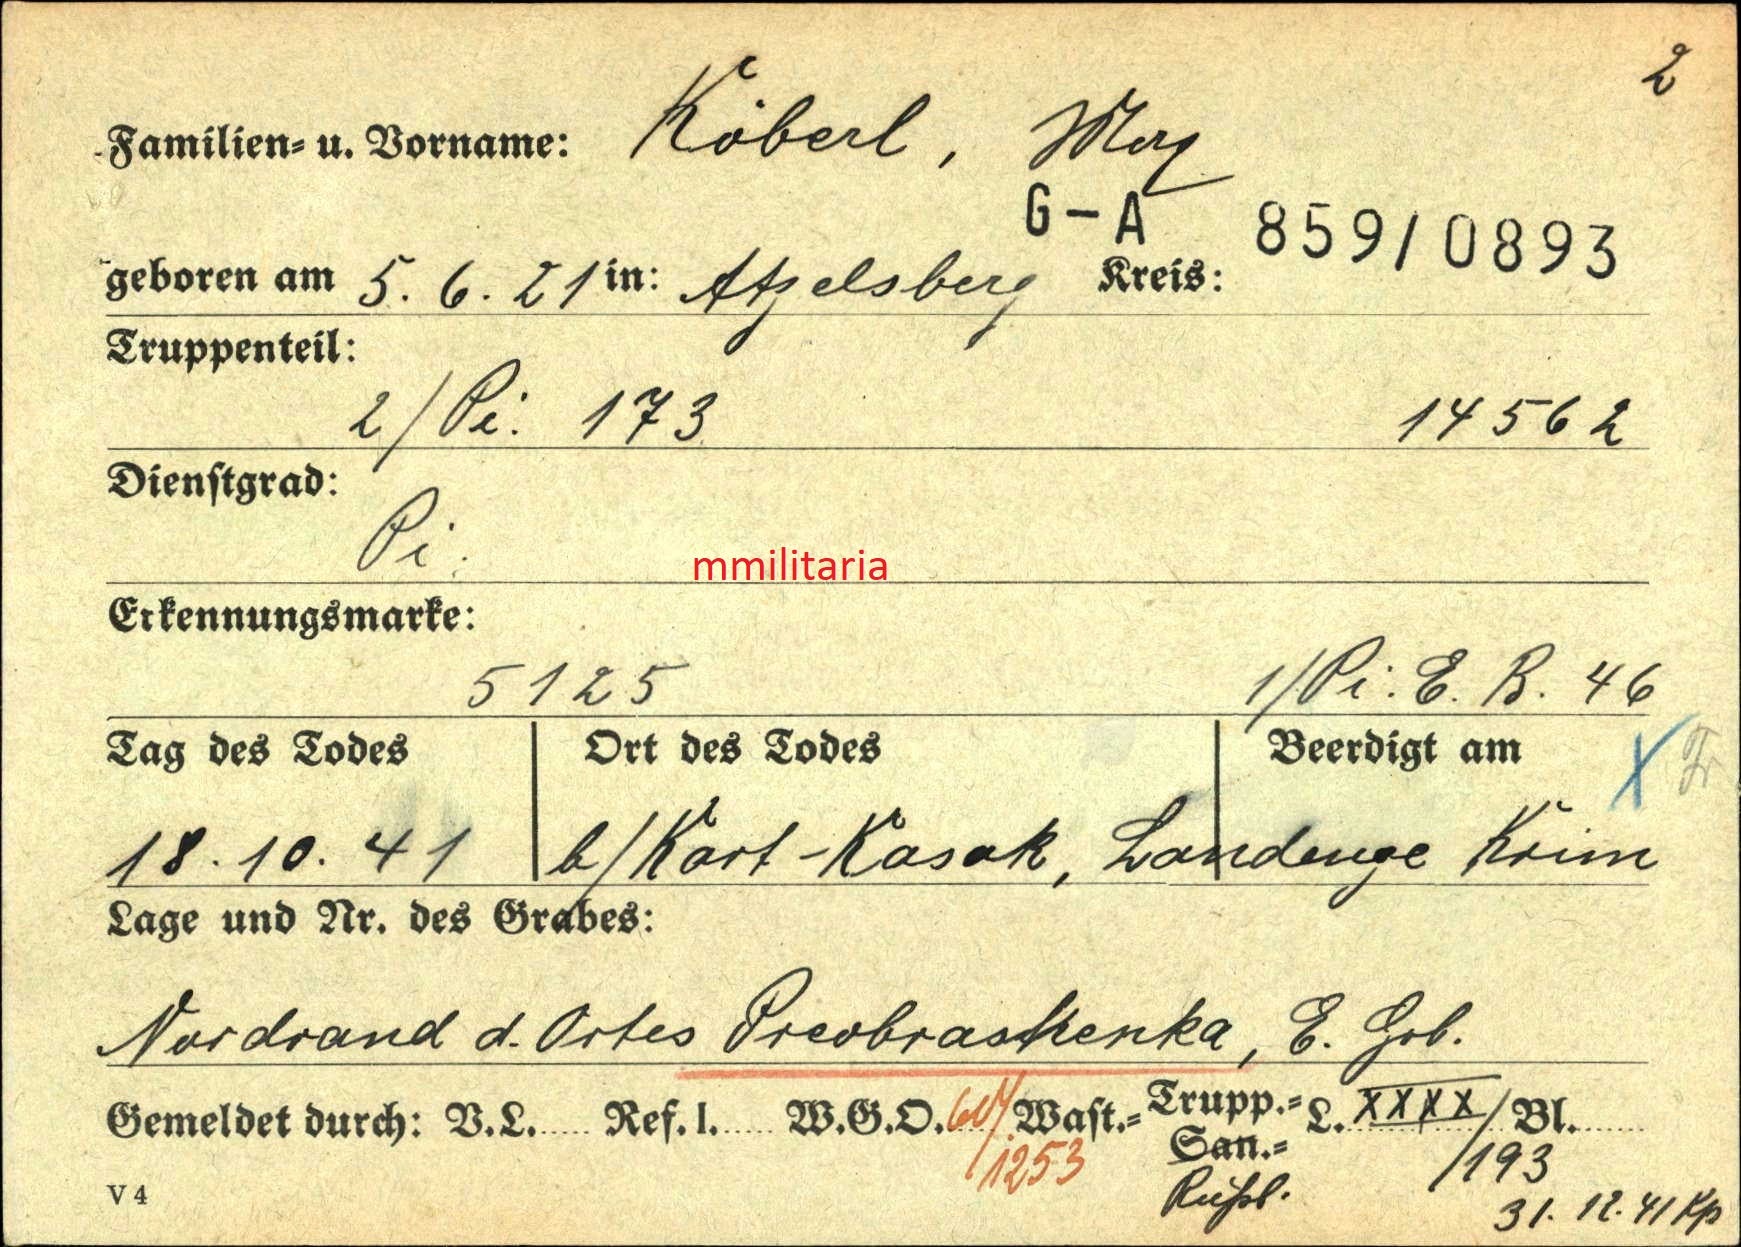 2
Familien- u. Vorname: Köberl,
G-A 859/0893
geboren am 5. 6. 21 in: Atzelsberg Kreis:
Truppenteil:
2/Pi. 173 14562
Dienstgrad:
Pi.
mmilitaria
Erkennungsmarke:
5125 1/Pi. E. B. 46
Tag des Todes Ort des Todes Beerdigt am X
18. 10. 41 b/Kart-Kasak, Landenge Krim
Lage und Nr. des Grabes:
Nordrand d. Ortes Preobrashenka, E. Grb.
Gemeldet durch: V.L. Ref. I. W.G.O. Wast.= Trupp.= L. XXXX / Bl.
/1253 San.= /193
Rußl. 31. 12. 41 Kp
V 4